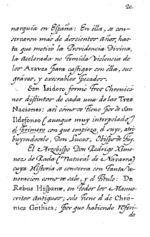 20.
narquia en España: En ella, se con-
servaron mas de doscientos años, has-
ta que motivó la Providencia Divina,
la acelerada se temida violencia de
los Arabes para castigar con ella, sus
graves, y execrables pecados.
San Isidoro formó tres Chroni-
cones distintos de cada una de las tres
Naciones: asi como se tiene por de San
Ildefonso (aunque muy interpolado)
el primero con que empieza, ó cuyo, atri-
buyendosele, Don Lucas, Obispo de Tuy.
El Arzobispo Don Rodrigo Xime-
nez de Rada (Natural de Navarra)
cuya Historia se conserva con tanta
neracion como se sabe, y el titulo: De
Rebus Hispaniæ, en Poder los + Manus-
critos antiguos; solo tiene él de Chro-
nica Gothica; Por que habiendo